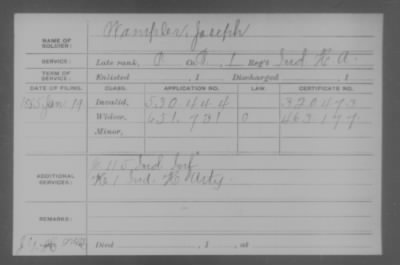 Wampler, Joseph
NAME OF SOLDIER:
SERVICE: Late rank, P Co. , 1 Reg't Ind H. A.
TERM OF SERVICE: Enlisted , 1 Discharged , 1
DATE OF FILING. CLASS. APPLICATION NO. LAW. CERTIFICATE NO.
1885 Jan 19 Invalid, 530444 320473
Widow, 651,731 0 463177
Minor,
ADDITIONAL SERVICES: 115 Ind Inf
K 1 Ind. H Arty.
REMARKS:
Died , 1 , at